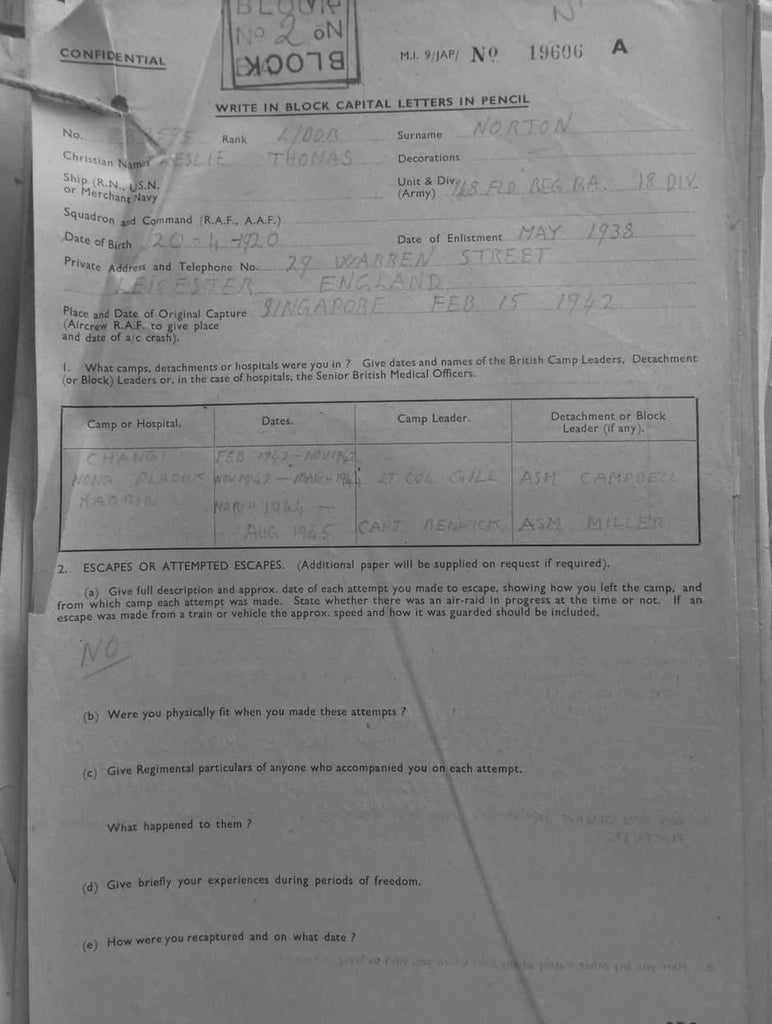 BLOCK
No 2
No
BLOCK
CONFIDENTIAL
M.I. 9/JAP/ No 19606 A
WRITE IN BLOCK CAPITAL LETTERS IN PENCIL
No. Rank L/BDR Surname NORTON
Christian Names LESLIE THOMAS Decorations
Ship (R.N., U.S.N. or Merchant Navy
Unit & Div. (Army) FLD REG RA. 18 DIV
Squadron and Command (R.A.F., A.A.F.)
Date of Birth 20-4-1920 Date of Enlistment MAY 1938
Private Address and Telephone No. 29 WARREN STREET
LEICESTER ENGLAND
Place and Date of Original Capture SINGAPORE FEB. 15 1942
(Aircrew R.A.F. to give place
and date of a/c crash).
1. What camps, detachments or hospitals were you in ? Give dates and names of the British Camp Leaders, Detachment
(or Block) Leaders or, in the case of hospitals, the Senior British Medical Officers.
Camp or Hospital. Dates. Camp Leader. Detachment or Block Leader (if any).
CHANGI FEB 1942 - NOV 1942
NONG PLADUK NOV 1942 - MARCH 1944 LT COL GILL ASM CAMPBELL
KAORIN MARCH 1944 -
AUG 1945 CAPT RENWICK ASM MILLER
2. ESCAPES OR ATTEMPTED ESCAPES. (Additional paper will be supplied on request if required).
(a) Give full description and approx. date of each attempt you made to escape, showing how you left the camp, and
from which camp each attempt was made. State whether there was an air-raid in progress at the time or not. If an
escape was made from a train or vehicle the approx. speed and how it was guarded should be included.
NO
(b) Were you physically fit when you made these attempts ?
(c) Give Regimental particulars of anyone who accompanied you on each attempt.
What happened to them ?
(d) Give briefly your experiences during periods of freedom.
(e) How were you recaptured and on what date ?